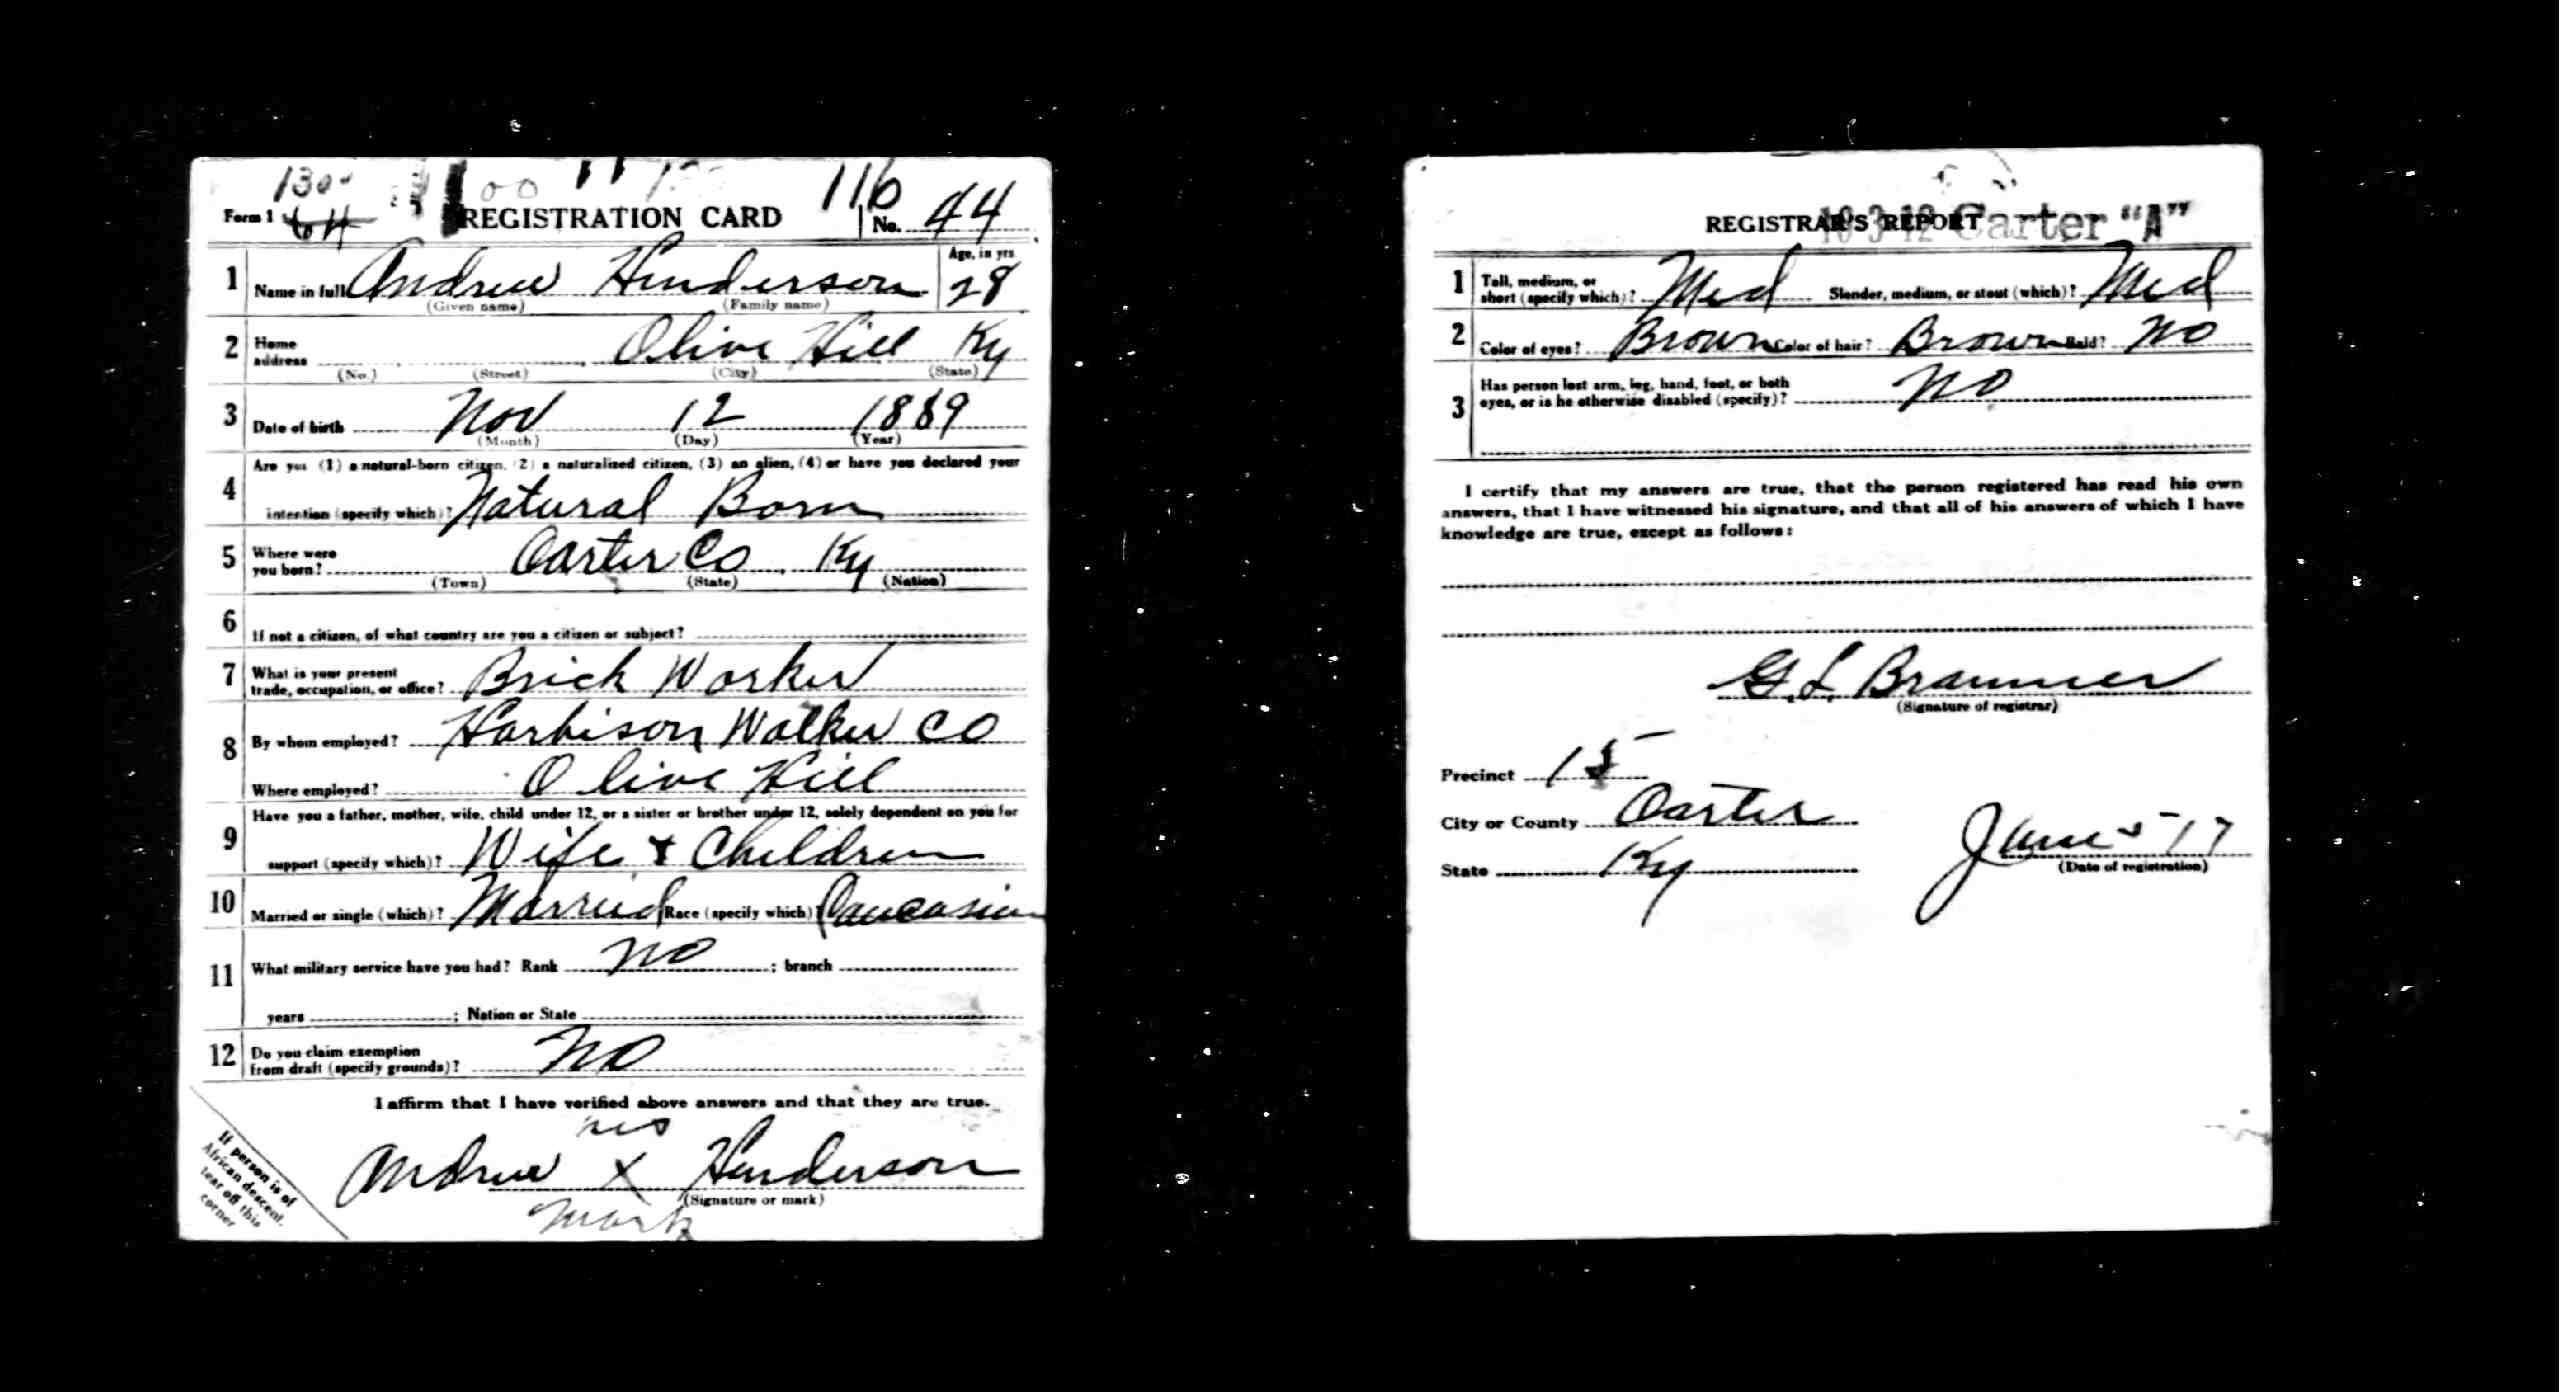 1300
116
Form 1 64 REGISTRATION CARD No. 44
1 Name in full Andrew Henderson Age, in yrs. 28
(Given name) (Family name)
2 Home address Olive Hill Ky
(No.) (Street) (City) (State)
3 Date of birth Nov 12 1889
(Month) (Day) (Year)
4 Are you (1) a natural-born citizen, (2) a naturalized citizen, (3) an alien, (4) or have you declared your
intention (specify which)? Natural Born
5 Where were you born? Carter Co Ky
(Town) (State) (Nation)
6 If not a citizen, of what country are you a citizen or subject?
7 What is your present trade, occupation, or office? Brick Worker
8 By whom employed? Harbison Walker Co
Where employed? Olive Hill
9 Have you a father, mother, wife, child under 12, or a sister or brother under 12, solely dependent on you for
support (specify which)? Wife & Children
10 Married or single (which)? Married Race (specify which)? Caucasian
11 What military service have you had? Rank no ; branch
years ; Nation or State
12 Do you claim exemption from draft (specify grounds)? No
I affirm that I have verified above answers and that they are true.
his
Andrew X Henderson
(Signature or mark)
mark
If person is of
African descent,
tear off this
corner
REGISTRAR'S REPORT Carter "A"
1 Tall, medium, or short (specify which)? Med Slender, medium, or stout (which)? Med
2 Color of eyes? Brown Color of hair? Brown Bald? No
3 Has person lost arm, leg, hand, foot, or both
eyes, or is he otherwise disabled (specify)? No
I certify that my answers are true, that the person registered has read his own
answers, that I have witnessed his signature, and that all of his answers of which I have
knowledge are true, except as follows:
G. L. Brammer
(Signature of registrar)
Precinct 15
City or County Carter
State Ky
June 5 17
(Date of registration)